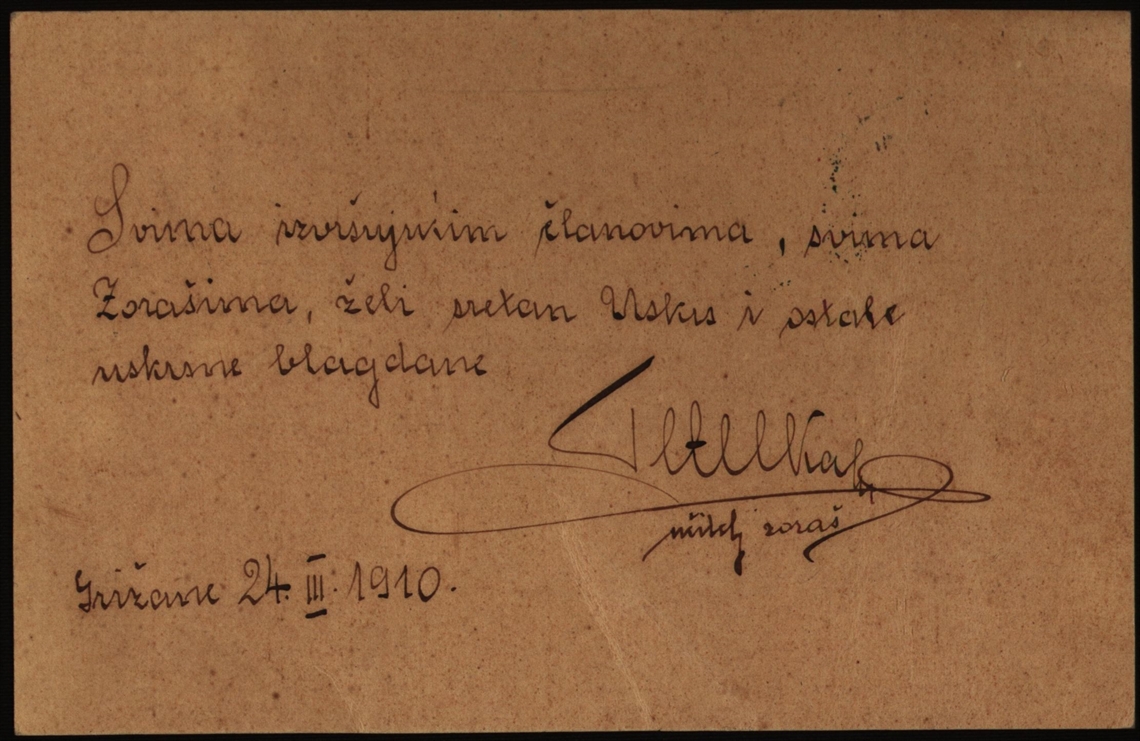 Svima izvršujućim članovima, svima
Zorašima, želi sretan Uskrs i ostale
uskrsne blagdane
učitelj zoraš
Grižane 24. III. 1910.